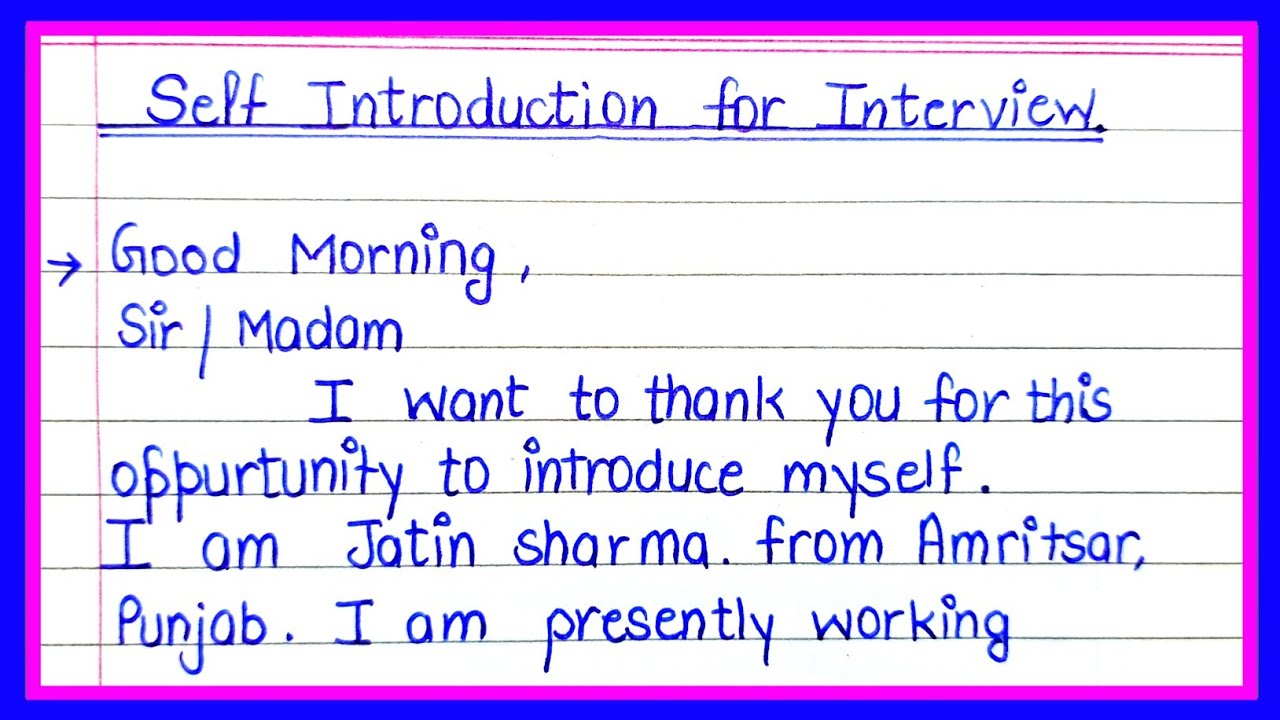 Self Introduction for Interview.
→ Good Morning,
Sir / Madam
I want to thank you for this
oppurtunity to introduce myself.
I am Jatin sharma. from Amritsar,
Punjab. I am presently working